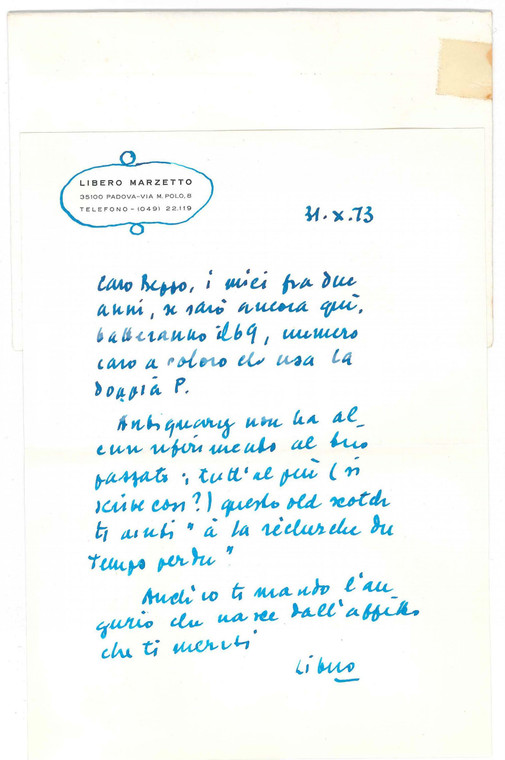 LIBERO MARZETTO
35100 PADOVA-VIA M. POLO, 8
TELEFONO - (049) 22.119
31.X.73
Caro Beppo, i miei fra due
anni, se sarò ancora qui,
batteranno il 69, numero
caro a coloro che usa la
doppia P.
Antiquary non ha al-
cun riferimento al tuo
passato; tutt'al più (si
scrive così?) questo old scotch
ti aiuti "à la recherche du
temps perdu"
Anch'io ti mando l'au-
gurio che nasce dall'affetto
che ti meriti
Libero